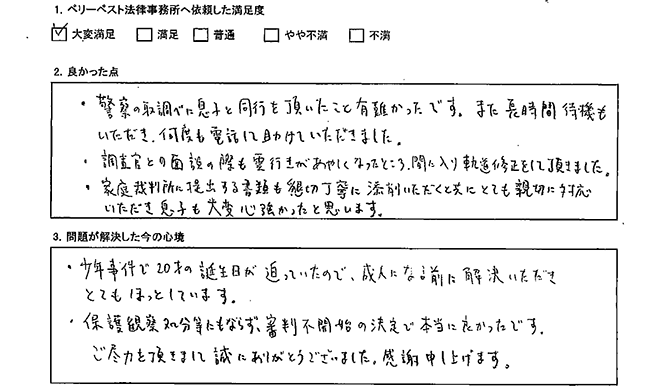 1. ベリーベスト法律事務所へ依頼した満足度
大変満足 満足 普通 やや不満 不満
2. 良かった点
・警察の取調べに息子と同行を頂いたこと有難かったです。また長時間待機も
いただき、何度も電話して助けていただきました。
・調査官との面談の際も雲行きがあやしくなったところ、間に入り軌道修正をして頂きました。
・家庭裁判所に提出する書類も懇切丁寧に添削いただくと共にとても親切に対応
いただき息子も大変心強かったと思います。
3. 問題が解決した今の心境
・少年事件で20才の誕生日が迫っていたので、成人になる前に解決いただき
とてもほっとしています。
・保護観察処分等にもならず、審判不開始の決定で本当に良かったです。
ご尽力を頂きまして誠にありがとうございました。感謝申し上げます。